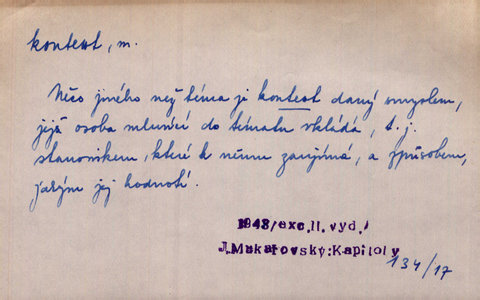 kontext, m.
Něco jiného než téma je kontext daný smyslem,
jejž osoba mluvící do tématu vkládá, t. j.
stanoviskem, které k němu zaujímá, a způsobem,
jakým jej hodnotí.
1948/exc.II.vyd./
J.Mukařovský:Kapitoly
134/17